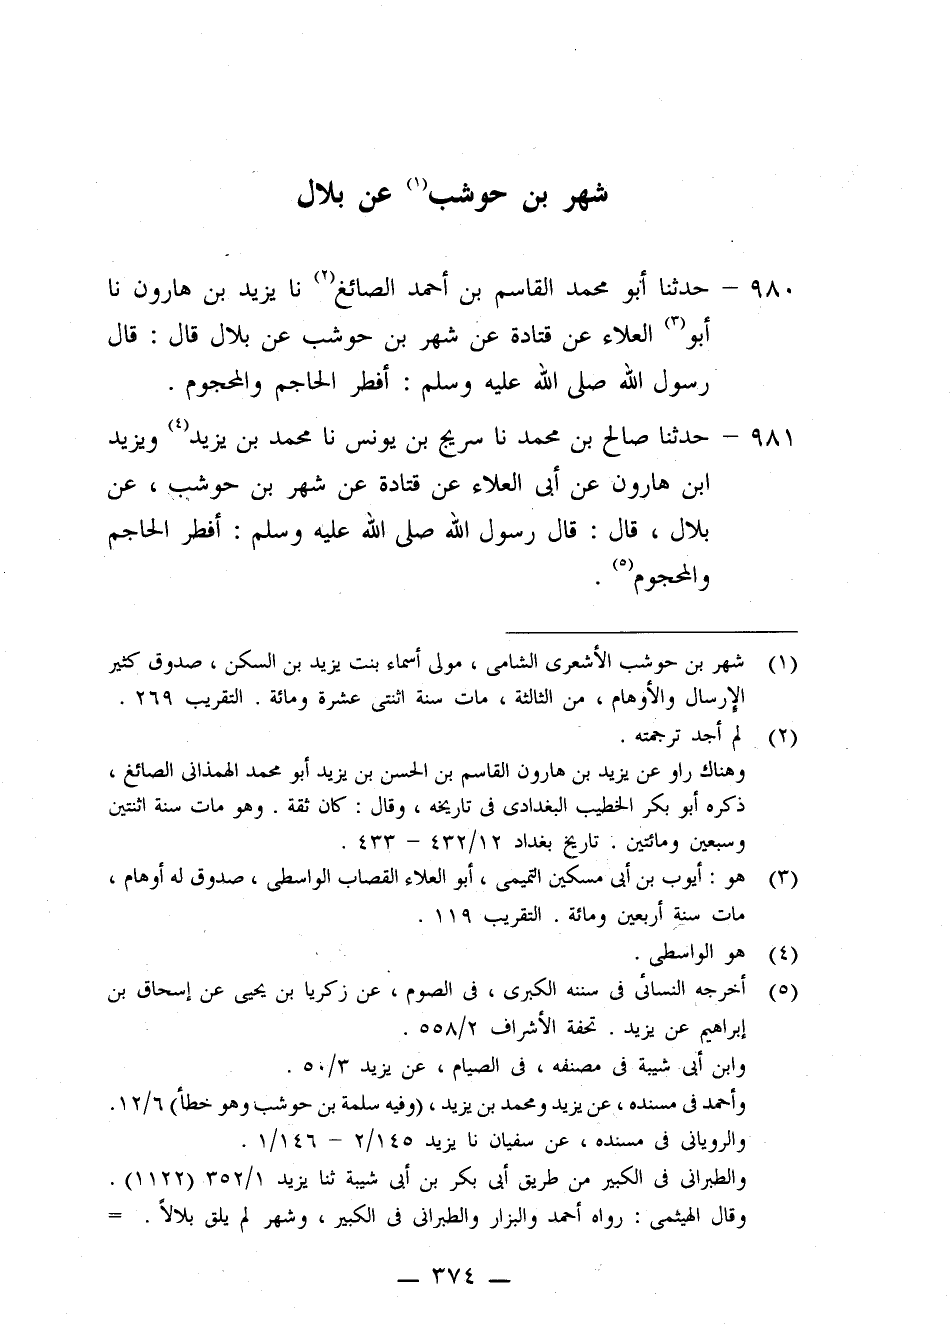 شهر بن حوشب(١) عن بلال
٩٨٠ – حدثنا أبو محمد القاسم بن أحمد الصائغ(٢) نا يزيد بن هارون نا
أبو(٣) العلاء عن قتادة عن شهر بن حوشب عن بلال قال : قال
رسول الله صلى الله عليه وسلم : أفطر الحاجم والمحجوم .
٩٨١ – حدثنا صالح بن محمد نا سريج بن يونس نا محمد بن يزيد(٤) ويزيد
ابن هارون عن أبى العلاء عن قتادة عن شهر بن حوشب ، عن
بلال ، قال : قال رسول الله صلى الله عليه وسلم : أفطر الحاجم
والمحجوم(٥) .
(١) شهر بن حوشب الأشعرى الشامى ، مولى أسماء بنت يزيد بن السكن ، صدوق كثير
الإرسال والأوهام ، من الثالثة ، مات سنة اثنتى عشرة ومائة . التقريب ٢٦٩ .
(٢) لم أجد ترجمته .
وهناك راو عن يزيد بن هارون القاسم بن الحسن بن يزيد أبو محمد الهمذانى الصائغ ،
ذكره أبو بكر الخطيب البغدادى فى تاريخه ، وقال : كان ثقة . وهو مات سنة اثنتين
وسبعين ومائتين . تاريخ بغداد ٤٣٢/١٢ – ٤٣٣ .
(٣) هو : أيوب بن أبى مسكين التميمى ، أبو العلاء القصاب الواسطى ، صدوق له أوهام ،
مات سنة أربعين ومائة . التقريب ١١٩ .
(٤) هو الواسطى .
(٥) أخرجه النسائى فى سننه الكبرى ، فى الصوم ، عن زكريا بن يحيى عن إسحاق بن
إبراهيم عن يزيد . تحفة الأشراف ٥٥٨/٢ .
وابن أبى شيبة فى مصنفه ، فى الصيام ، عن يزيد ٥٠/٣ .
وأحمد فى مسنده ، عن يزيد ومحمد بن يزيد ، (وفيه سلمة بن حوشب وهو خطأ) ١٢/٦ .
والرويانى فى مسنده ، عن سفيان نا يزيد ٢/١٤٥ – ١/١٤٦ .
والطبرانى فى الكبير من طريق أبى بكر بن أبى شيبة ثنا يزيد ٣٥٢/١ (١١٢٢) .
وقال الهيثمى : رواه أحمد والبزار والطبرانى فى الكبير ، وشهر لم يلق بلالاً . =
— ٣٧٤ —